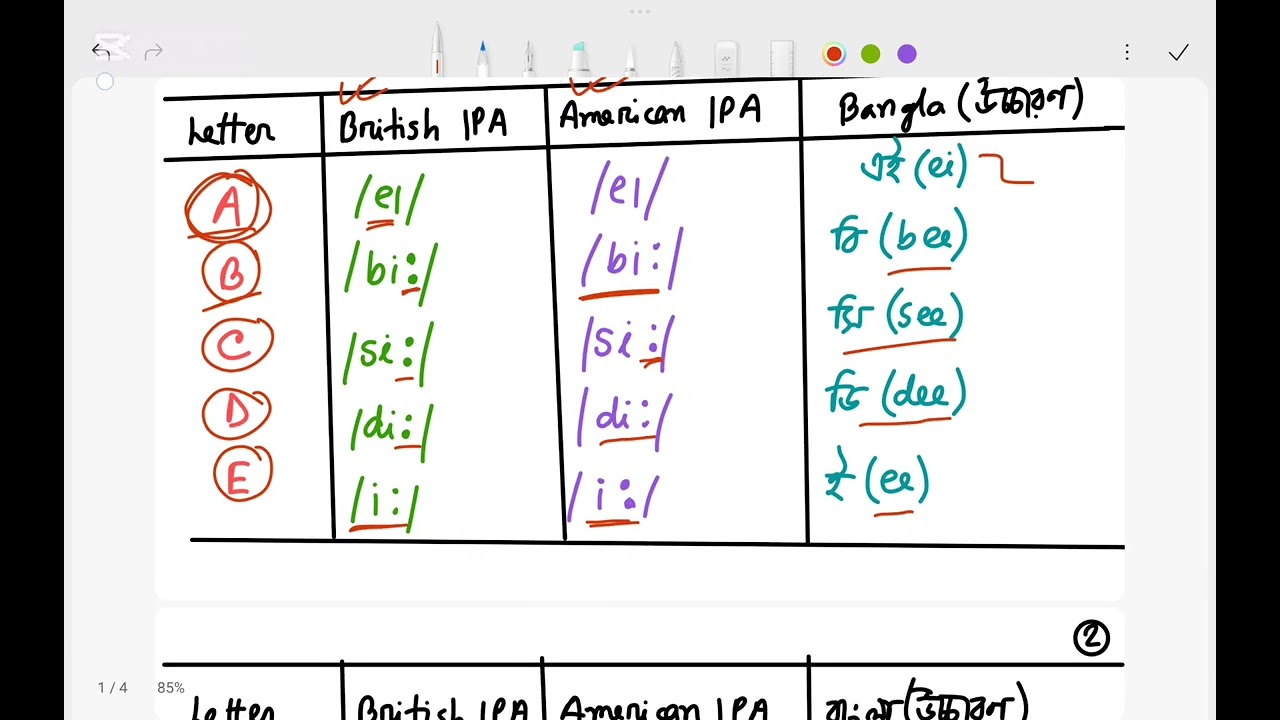 Letter British IPA American IPA Bangla (উচ্চারণ)
A /eɪ/ /eɪ/ এই (ei)
B /bi:/ /bi:/ বি (bee)
C /si:/ /si:/ সি (see)
D /di:/ /di:/ ডি (dee)
E /i:/ /i:/ ই (ee)
2
1 / 4 85%
Letter British IPA American IPA বাংলা (উচ্চারণ)